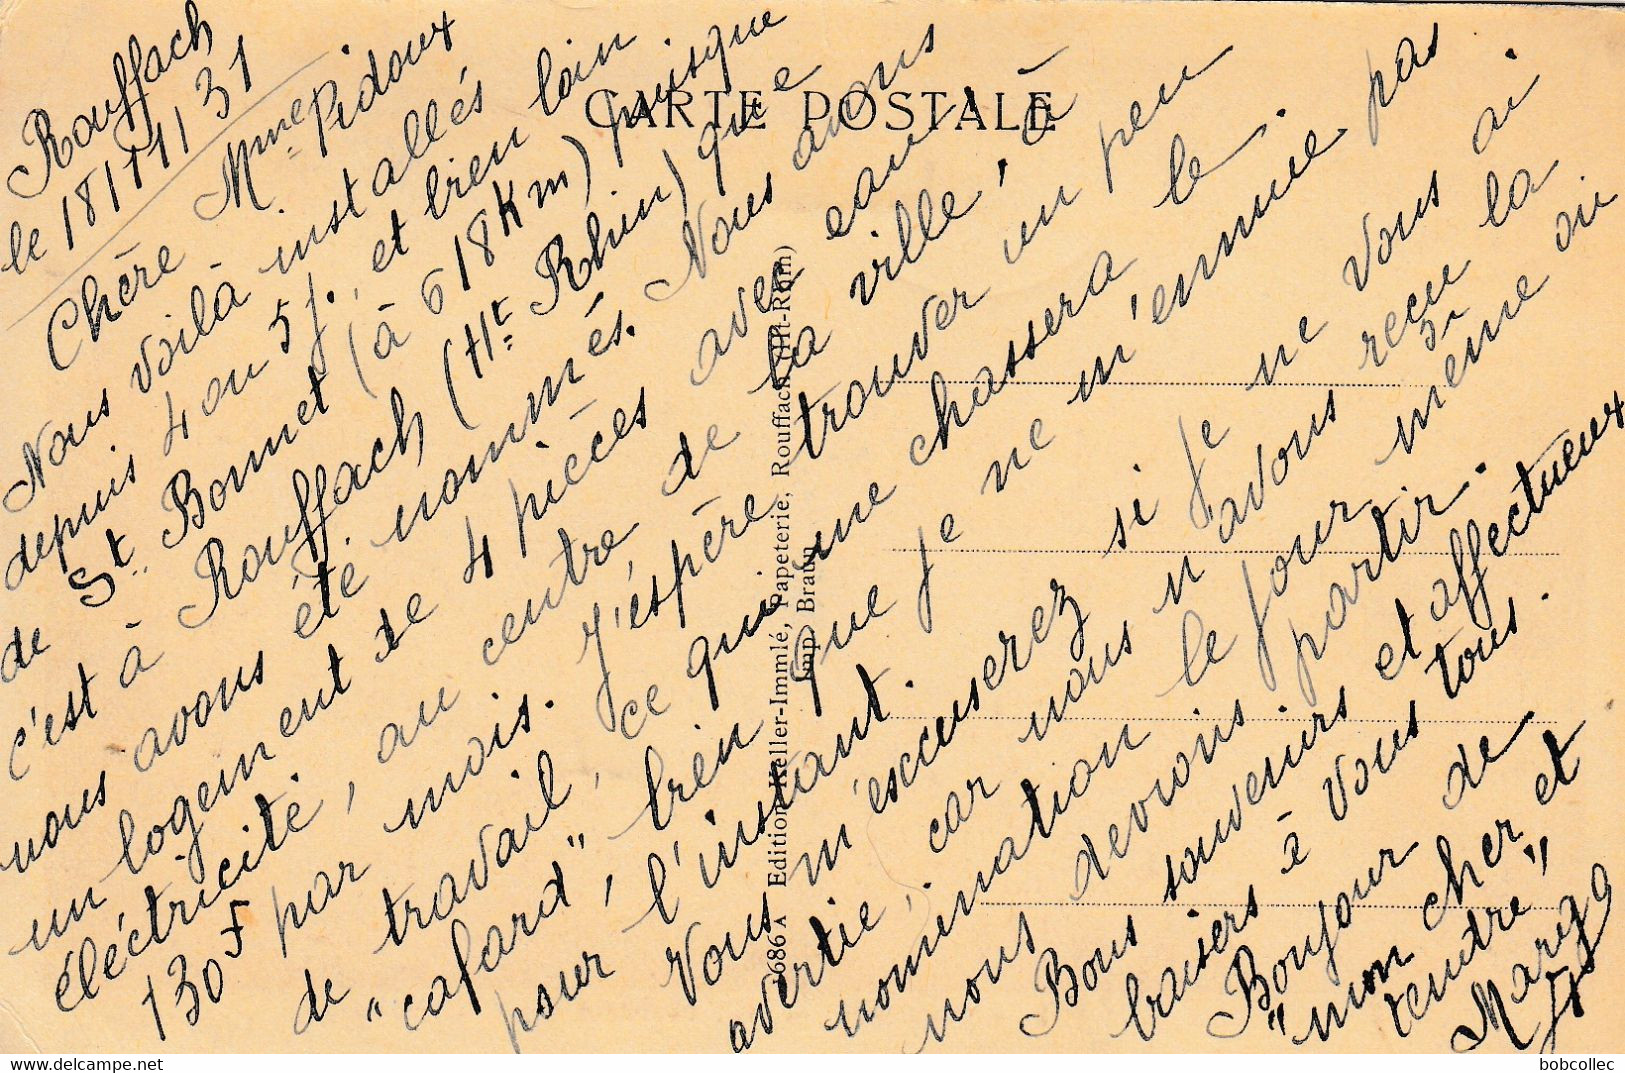 Rouffach
le 18/11/31
Chère Mme Pidoux
Nous voilà installés
depuis 4 ou 5 j. et bien loin
de St. Bonnet (à 618 Km) puisque
c'est à Rouffach (Ht. Rhin) que
nous avons été nommés. Nous avons
un logement de 4 pièces avec eau
électricité, au centre de la ville, à
130F par mois. J'espère trouver un peu
de travail, ce qui me chassera le
"cafard", bien que je ne m'ennuie pas
pour l'instant.
Vous m'excuserez si je ne vous ai
avertie, car nous n'avons reçu la
nomination le jour même où
nous devions partir.
Bons souvenirs et affectueux
baisers à vous tous.
Bonjour de
"mon cher et
tendre",
CARTE POSTALE
686 A Edition Keller-Immlé, Papeterie, Rouffach (Ht-Rhin)
Imp. Braun
bobcollec